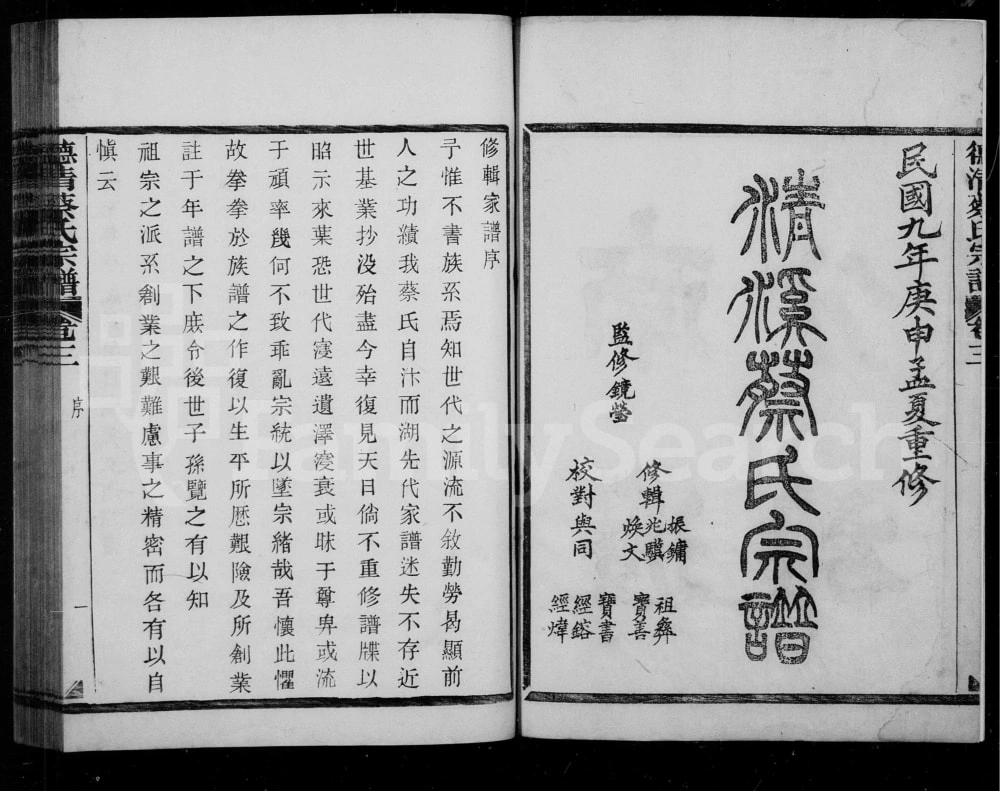 德清蔡氏宗譜 卷三
民國九年庚申孟夏重修
清溪蔡氏宗譜
監修鏡瑩
修輯
振鏞
兆驥
煥文
校對與同
祖彝
寶善
寶書
經鎔
經煒
修輯家譜序
予惟不書族系焉知世代之源流不敘勤勞曷顯前
人之功績我蔡氏自汴而湖先代家譜迷失不存近
世基業抄没殆盡今幸復見天日倘不重修譜牒以
昭示來葉恐世代寖遠遺澤寖衰或昧于尊卑或流
于頑率幾何不致乖亂宗統以墜宗緒哉吾懷此懼
故拳拳於族譜之作復以生平所厯艱險及所創業
註于年譜之下庶令後世子孫覽之有以知
祖宗之派系創業之艱難慮事之精密而各有以自
慎云
德清蔡氏宗譜 卷三
序
一
FamilySearch